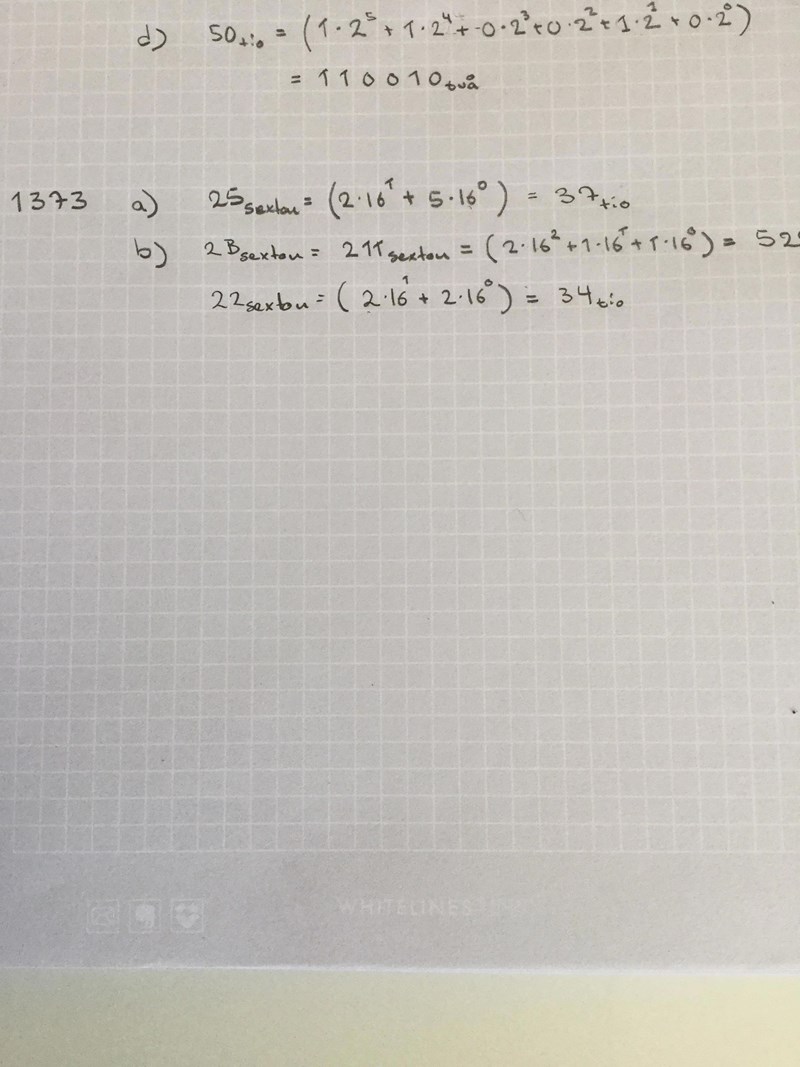 d) 50tio = (1·2⁵ + 1·2⁴ + 0·2³ + 0·2² + 1·2¹ + 0·2⁰)
= 110010två
1373 a) 25sexton = (2·16¹ + 5·16⁰) = 37tio
b) 2Bsexton = 211sexton = (2·16² + 1·16¹ + 1·16⁰) = 52
22sexton = (2·16¹ + 2·16⁰) = 34tio
WHITELINES